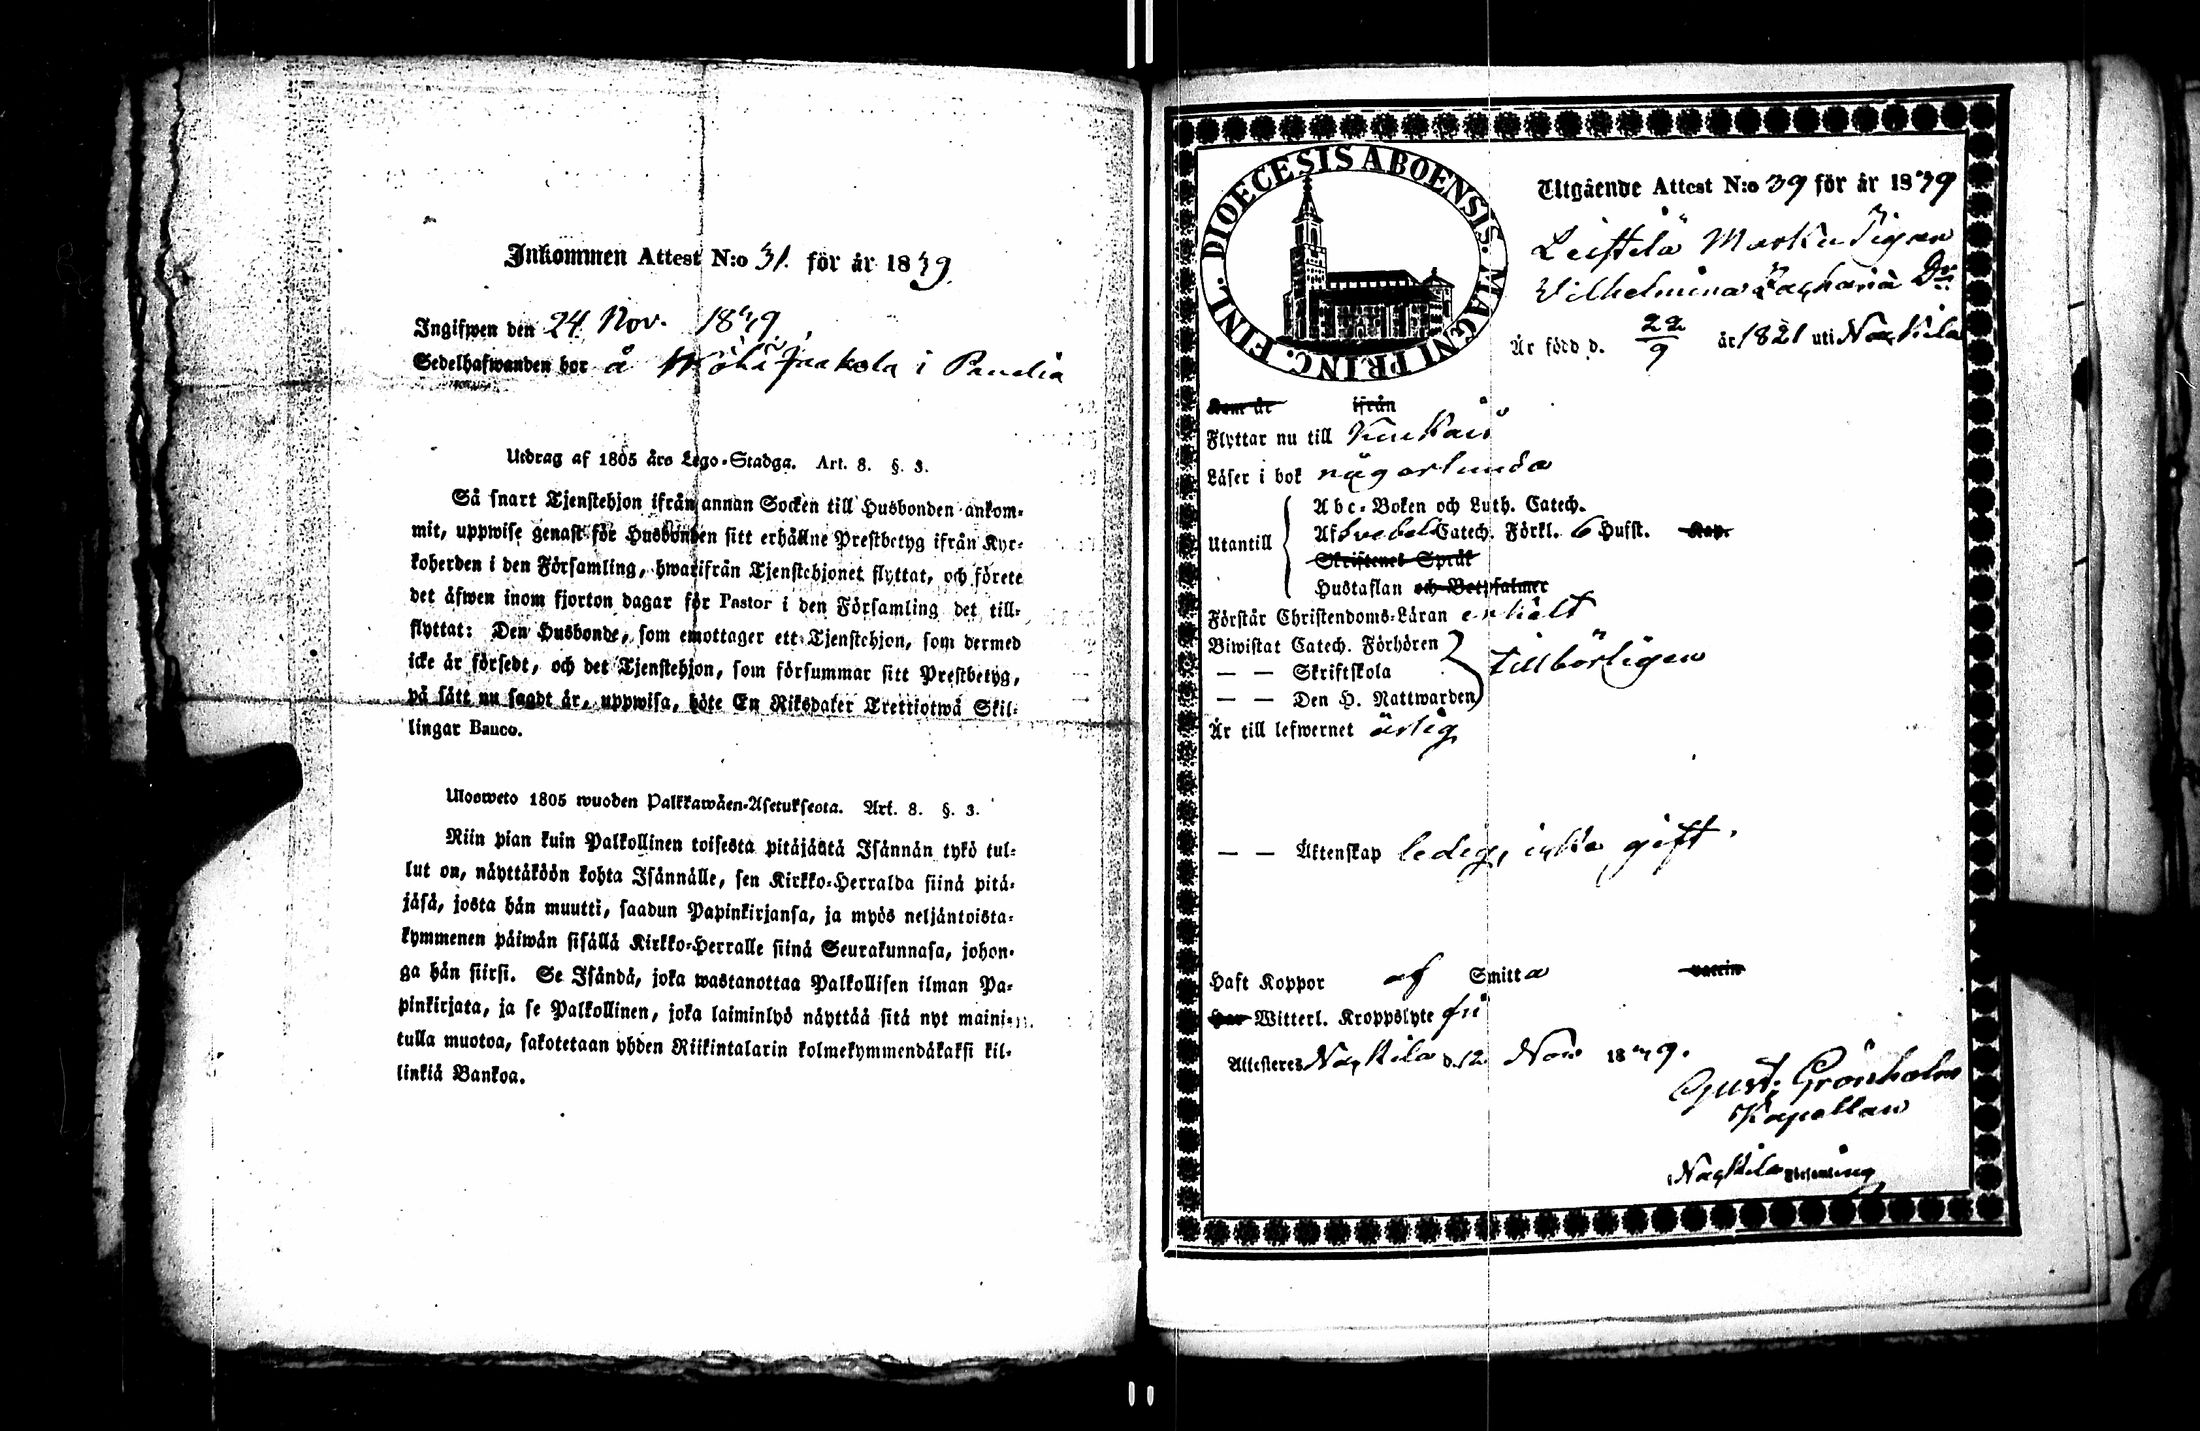 Inkommen Attest N:o 31. för år 1849.
Ingifwen den 24 Nov. 1849
Sedelhafwanden bor å Jaakola i Panelia
Utdrag af 1805 års Lego-Stadga. Art. 8. §. 3.
Så snart Tjenstehjon ifrån annan Socken till Husbonden ankom-
mit, uppwise genast för Husbonden sitt erhållne Prestbetyg ifrån Kyr-
koherden i den Församling, hwarifrån Tjenstehjonet flyttat, och förete
det äfwen inom fjorton dagar för Pastor i den Församling det till-
flyttat: Den Husbonde, som emottager ett Tjenstehjon, som dermed
icke är försedt, och det Tjenstehjon, som försummar sitt Prestbetyg,
på sätt nu sagdt är, uppwisa, böte En Riksdaler Trettiotwå Skil-
lingar Banco.
Ulosweto 1805 wuoden Palkkawäen-Asetuksesta. Art. 8. §. 3.
Niin pian kuin Palkollinen toisesta pitäjästä Isännän tykö tul-
lut on, näyttäköön kohta Isännälle, sen Kirkko-Herralda siinä pitä-
jäsä, josta hän muutti, saadun Papinkirjansa, ja myös neljäntoista-
kymmenen päiwän sisällä Kirkko-Herralle siinä Seurakunnasa, johon-
ga hän siirsi. Se Isändä, joka wastanottaa Palkollisen ilman Pa-
pinkirjata, ja se Palkollinen, joka laiminlyö näyttää sitä nyt maini-
tulla muotoa, sakotetaan yhden Riikintalarin kolmekymmendäkaksi kil-
linkiä Bankoa.
DIOECESIS ABOENSIS. MAGNI PRINC. FINL.
Utgående Attest N:o 39 för år 1849
Leistilä Marku Pigan
Vilhelmina Zacharia Dr
Är född d. 22/9 år 1821 uti Nackila
Kom år ifrån
Flyttar nu till Kiukais
Läser i bok någorlunda
Utantill
Abc-Boken och Luth. Catech.
Af Svebel. Catech. Förkl. 6 Hufst. Kap.
Skriftenes Språk
Hustaflan och Botpsalmer
Förstår Christendoms-Läran enkelt
Biwistat Catech. Förhören
— — Skriftskola tillbörligen
— — Den H. Nattwarden
Är till lefwernet ärlig
— — Äktenskap ledig, icke gift.
Haft Koppor af Smitta vaccin
Har Witterl. Kroppslyte fri
Attesteres Nackila d. 12 Nov 1849.
Gust. Grönholm
Kapellan
Nackila Församling